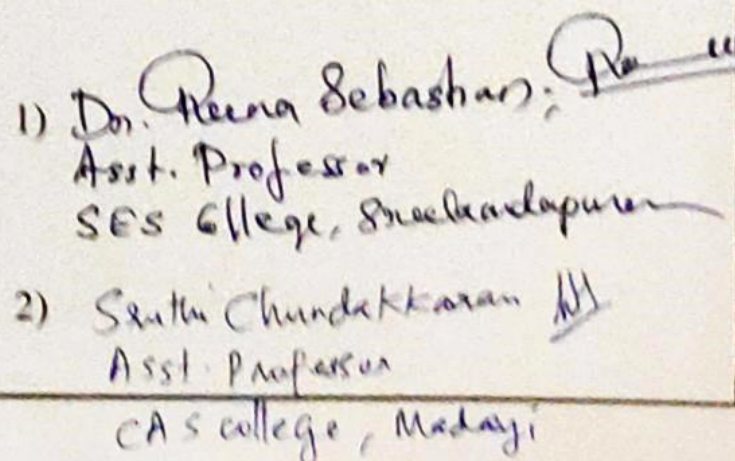 1) Dr. Reena Sebastian;
Asst. Professor
SES College, Sreekandapuram
2) Sruthi Chundakkaran
Asst. Professor
CAS college, Madayi